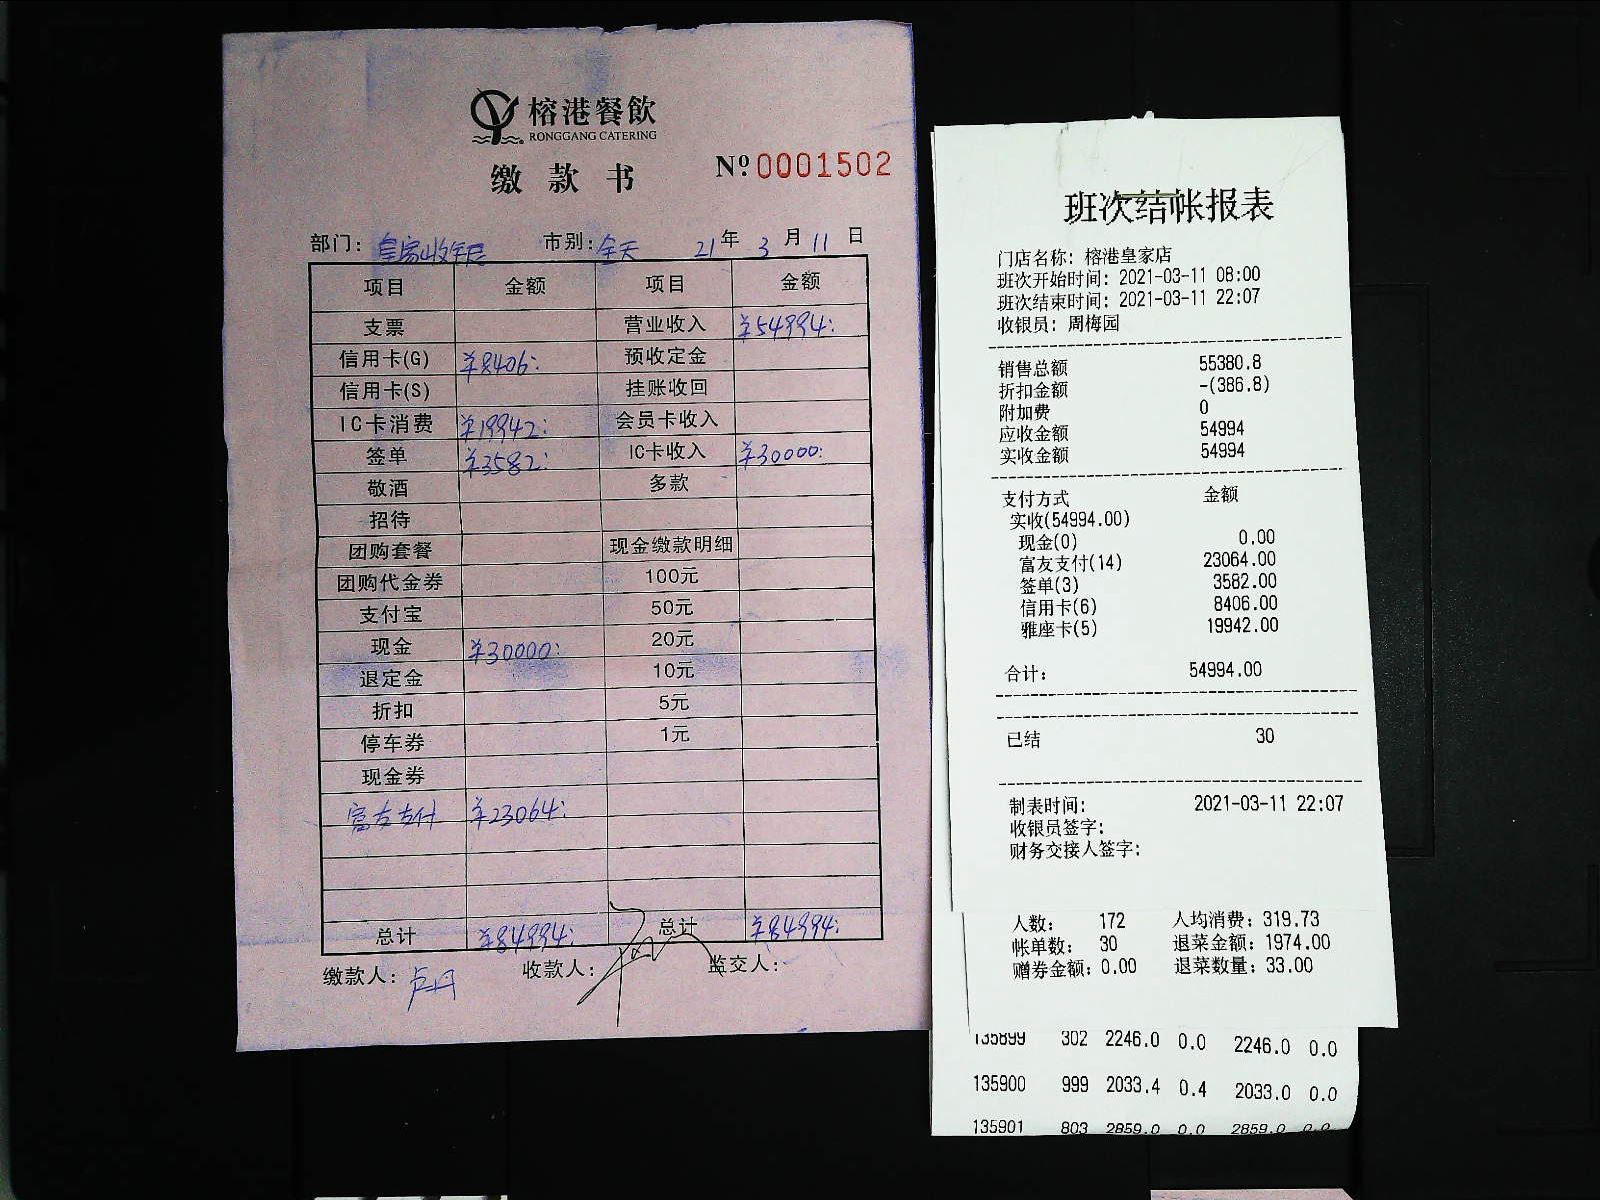 榕港餐飲
RONGGANG CATERING
缴款书 Nº 0001502
部门: 皇家收银 市别: 全天 21年 3月 11日
项目 金额 项目 金额
支票 营业收入 ¥54994:
信用卡(G) ¥8406: 预收定金
信用卡(S) 挂账收回
IC卡消费 ¥19942: 会员卡收入
签单 ¥3582: IC卡收入 ¥30000:
敬酒 多款
招待
团购套餐 现金缴款明细
团购代金券 100元
支付宝 50元
现金 ¥30000: 20元
退定金 10元
折扣 5元
停车券 1元
现金券
富友支付 ¥23064:
总计 ¥84994: 总计 ¥84994:
缴款人: 卢丹 收款人: 监交人:
班次结帐报表
门店名称: 榕港皇家店
班次开始时间: 2021-03-11 08:00
班次结束时间: 2021-03-11 22:07
收银员: 周梅园
销售总额 55380.8
折扣金额 -(386.8)
附加费 0
应收金额 54994
实收金额 54994
支付方式 金额
实收(54994.00)
现金(0) 0.00
富友支付(14) 23064.00
签单(3) 3582.00
信用卡(6) 8406.00
雅座卡(5) 19942.00
合计: 54994.00
已结 30
制表时间: 2021-03-11 22:07
收银员签字:
财务交接人签字:
人数: 172 人均消费: 319.73
帐单数: 30 退菜金额: 1974.00
赠券金额: 0.00 退菜数量: 33.00
135899 302 2246.0 0.0 2246.0 0.0
135900 999 2033.4 0.4 2033.0 0.0
135901 803 2859.0 0.0 2859.0 0.0